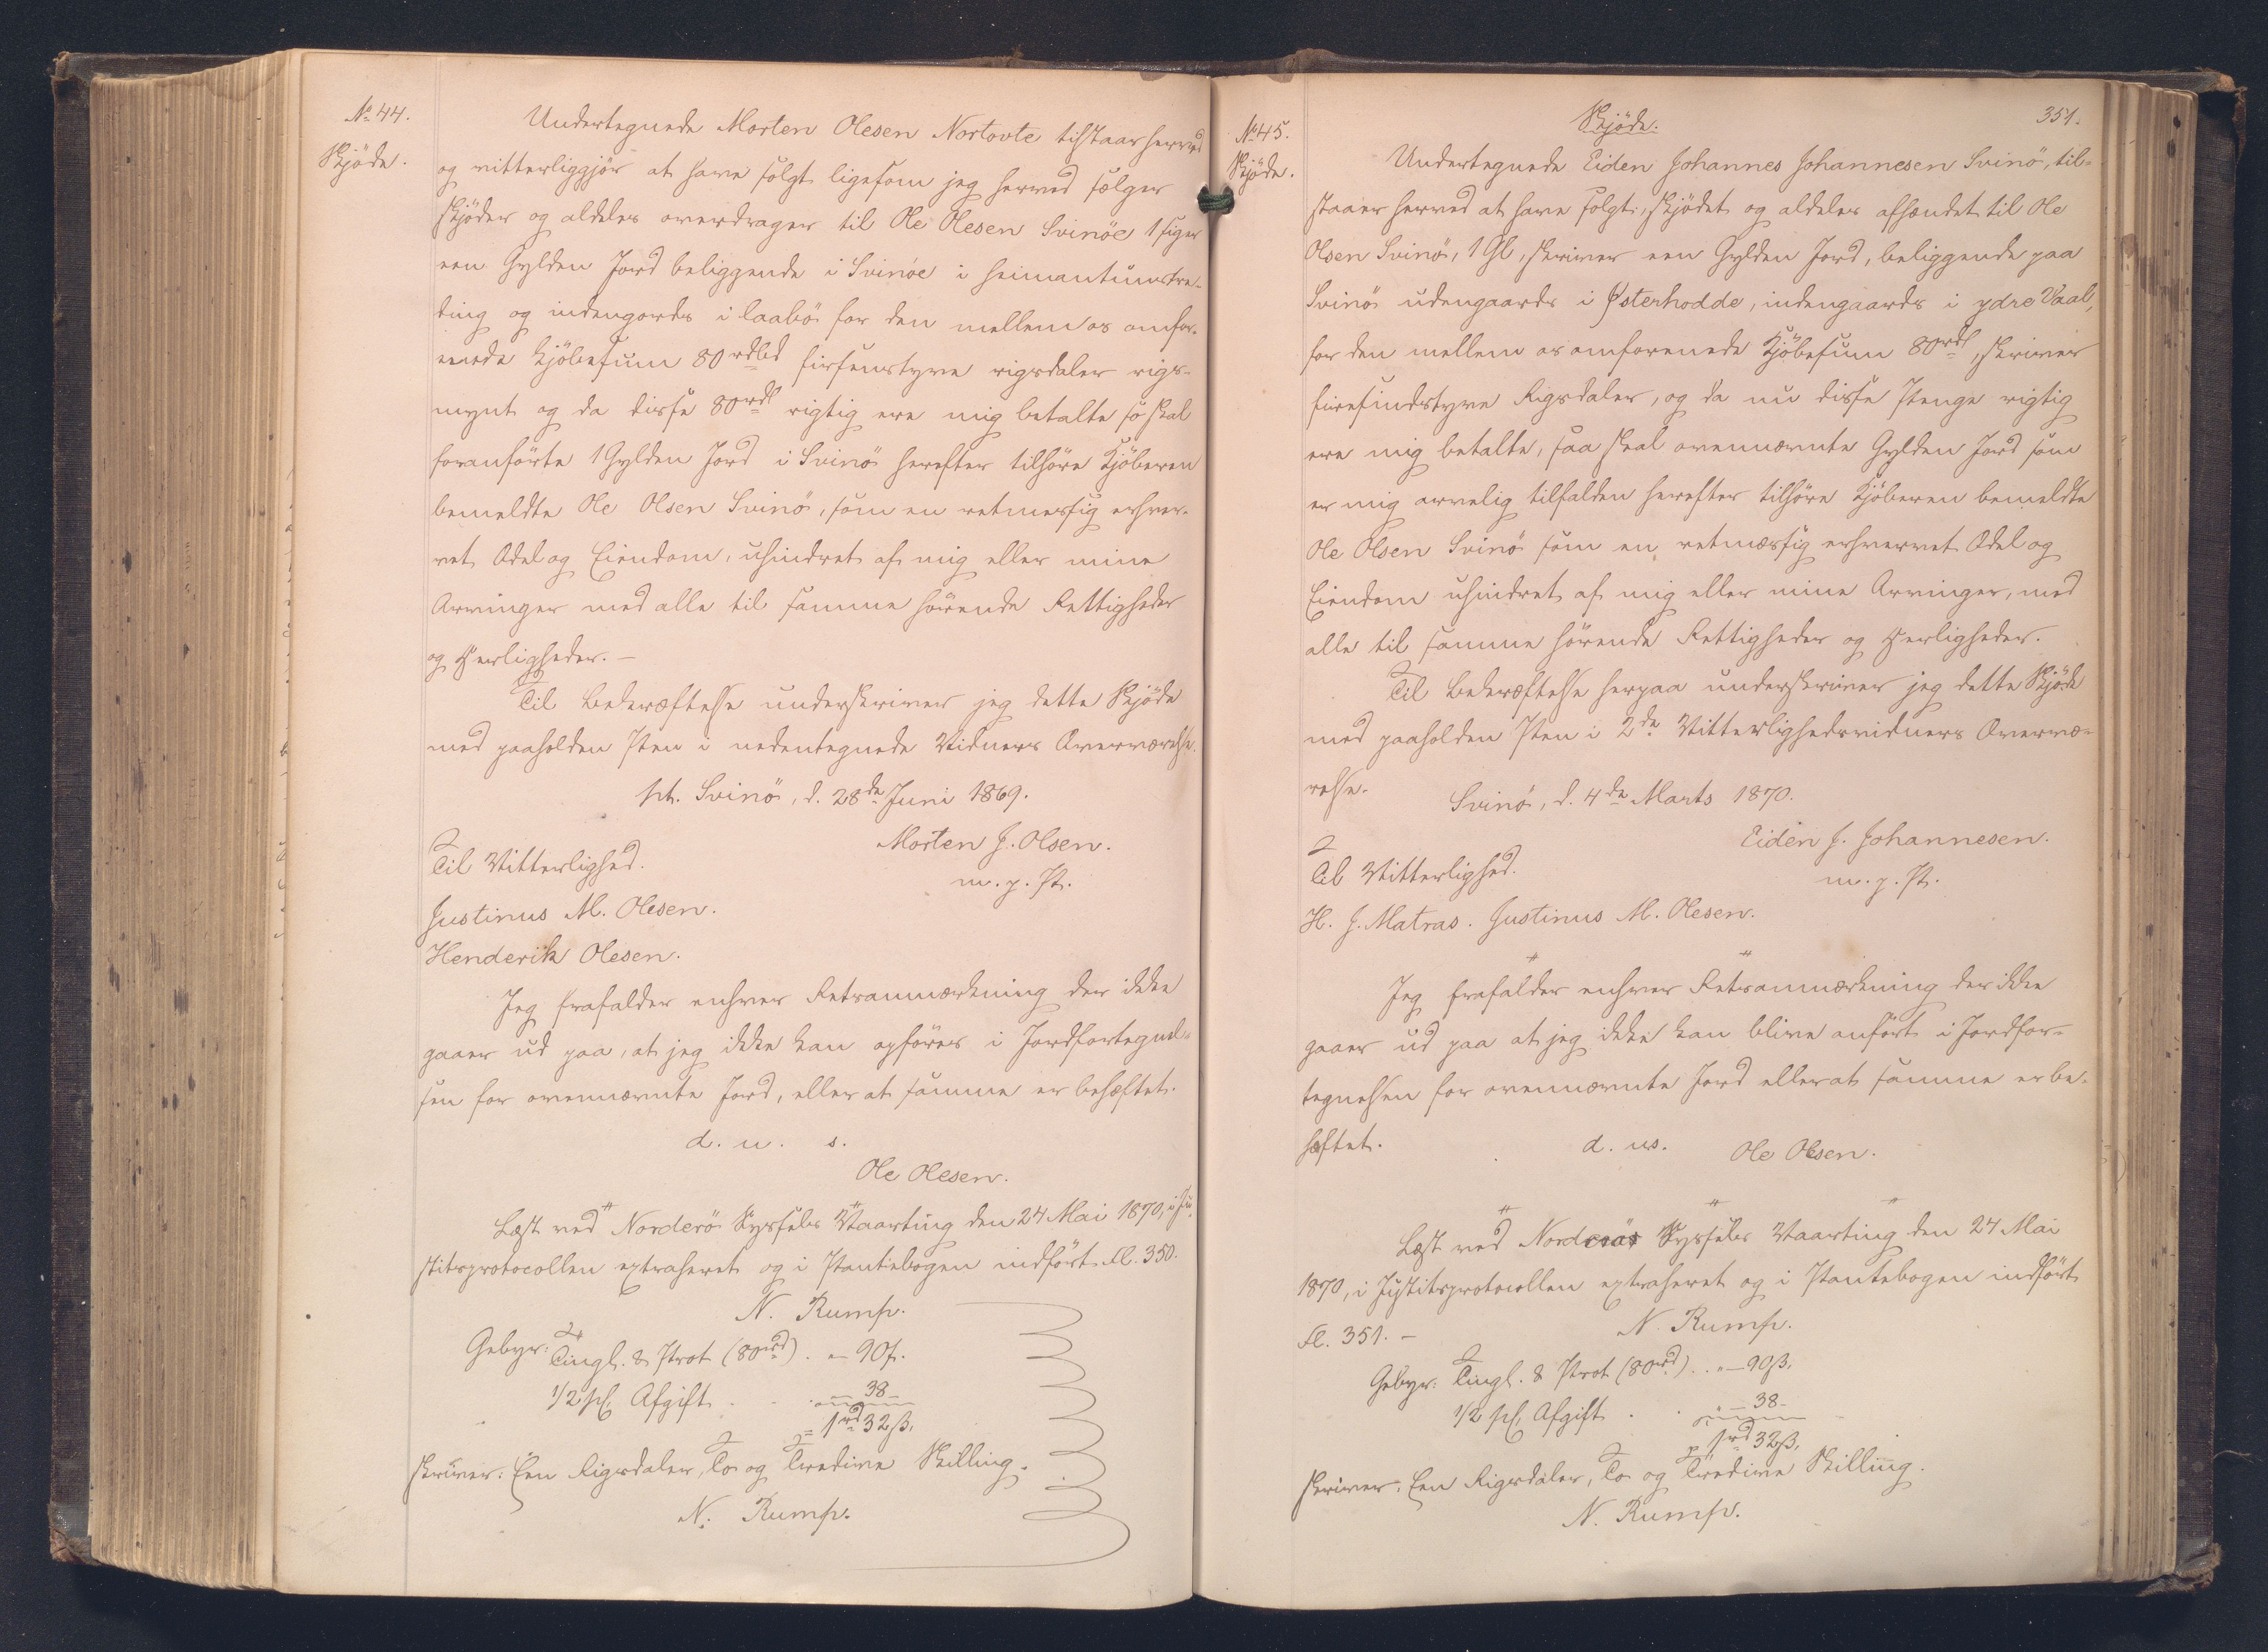 № 44.
Skjöde.
Undertegnede Morten Olesen Nortovte tilstaar herved
og vitterliggjör at have solgt ligesom jeg herved sælger
skjöder og aldeles overdrager til Ole Olesen Svinöe 1 siger
een Gylden Jord beliggende i Svinöe i heimantunstre-
ding og indengards i laabö for den mellem os omfor-
enede Kjöbesum 80 rdbd firsenstyve rigsdaler rigs-
mynt og da disse 80 rdl rigtig ere mig betalte so skal
foranförte 1 Gylden Jord i Svinö herefter tilhöre Kjöberen
bemeldte Ole Olsen Svinö, som en retmessig erhver-
vet Odel og Eiendom, uhindret af mig eller mine
Arvinger med alle til samme hörende Rettigheder
og Herligheder. —
Til Bekræftelse underskriver jeg dette Skjöde
med paaholden Pen i nedentegnede Vidners Overværelse.
pt. Svinö, d. 28de Juni 1869.
Morten J. Olsen.
m. p. P.
Til Vitterlighed.
Justinus M. Olesen.
Henderik Olesen.
Jeg frafalder enhver Retsanmærkning der ikke
gaaer ud paa, at jeg ikke kan opföres i Jordfortegnel-
sen for ovennævnte Jord, eller at samme er behæftet.
d. u. s.
Ole Olesen.
Læst ved Norderö Syssels Vaarting den 24 Mai 1870, i Ju-
stitsprotocollen extraheret og i Pantebogen indfört Fl. 350.
N. Rump.
Gebyr: Tingl. & Prot (80 rd) . „ — 90 ß.
1/2 pC. Afgift . . „ — 38 —
= 1 rd 32 ß.
skriver: Een Rigsdaler, To og Tredive Skilling.
N. Rump.
351.
№ 45.
Skjöde.
Skjöde.
Undertegnede Eiden Johannes Johannesen Svinö, til-
staaer herved at have solgt, skjödet og aldeles afhændet til Ole
Olsen Svinö, 1 Gl, skriver een Gylden Jord, beliggende paa
Svinö udengaards i Østerhodde, indengaards i ydre Vaal,
for den mellem os omforenede Kjöbesum 80 rdl, skriver
firesindstyve Rigsdaler, og da nu disse Penge rigtig
ere mig betalte, saa skal ovennævnte Gylden Jord som
er mig arvelig tilfalden herefter tilhöre Kjöberen bemeldte
Ole Olsen Svinö som en retmæssig erhvervet Odel og
Eiendom uhindret af mig eller mine Arvinger, med
alle til samme hörende Rettigheder og Herligheder.
Til Bekræftelse herpaa underskriver jeg dette Skjöde
med paaholden Pen i 2de Vitterlighedsvidners Overvæ-
relse.
Svinö, d. 4de Marts 1870.
Eiden J. Johannesen.
m. p. P.
Til Vitterlighed.
H. J. Matras. Justinus M. Olesen.
Jeg frafalder enhver Retsanmærkning der ikke
gaaer ud paa at jeg ikke kan blive anfört i Jordfor-
tegnelsen for ovennævnte Jord eller at samme er be-
hæftet.
d. us. Ole Olsen.
Læst ved Norderös Syssels Vaarting den 24 Mai
1870, i Justitsprotocollen extraheret og i Pantebogen indfört
Fl. 351. —
N. Rump.
Gebyr: Tingl. & Prot (80 rd) . . „ — 90 ß.
1/2 pC. Afgift . . „ — 38 —
1 rd 32 ß.
skriver: Een Rigsdaler, To og Tredive Skilling.
N. Rump.